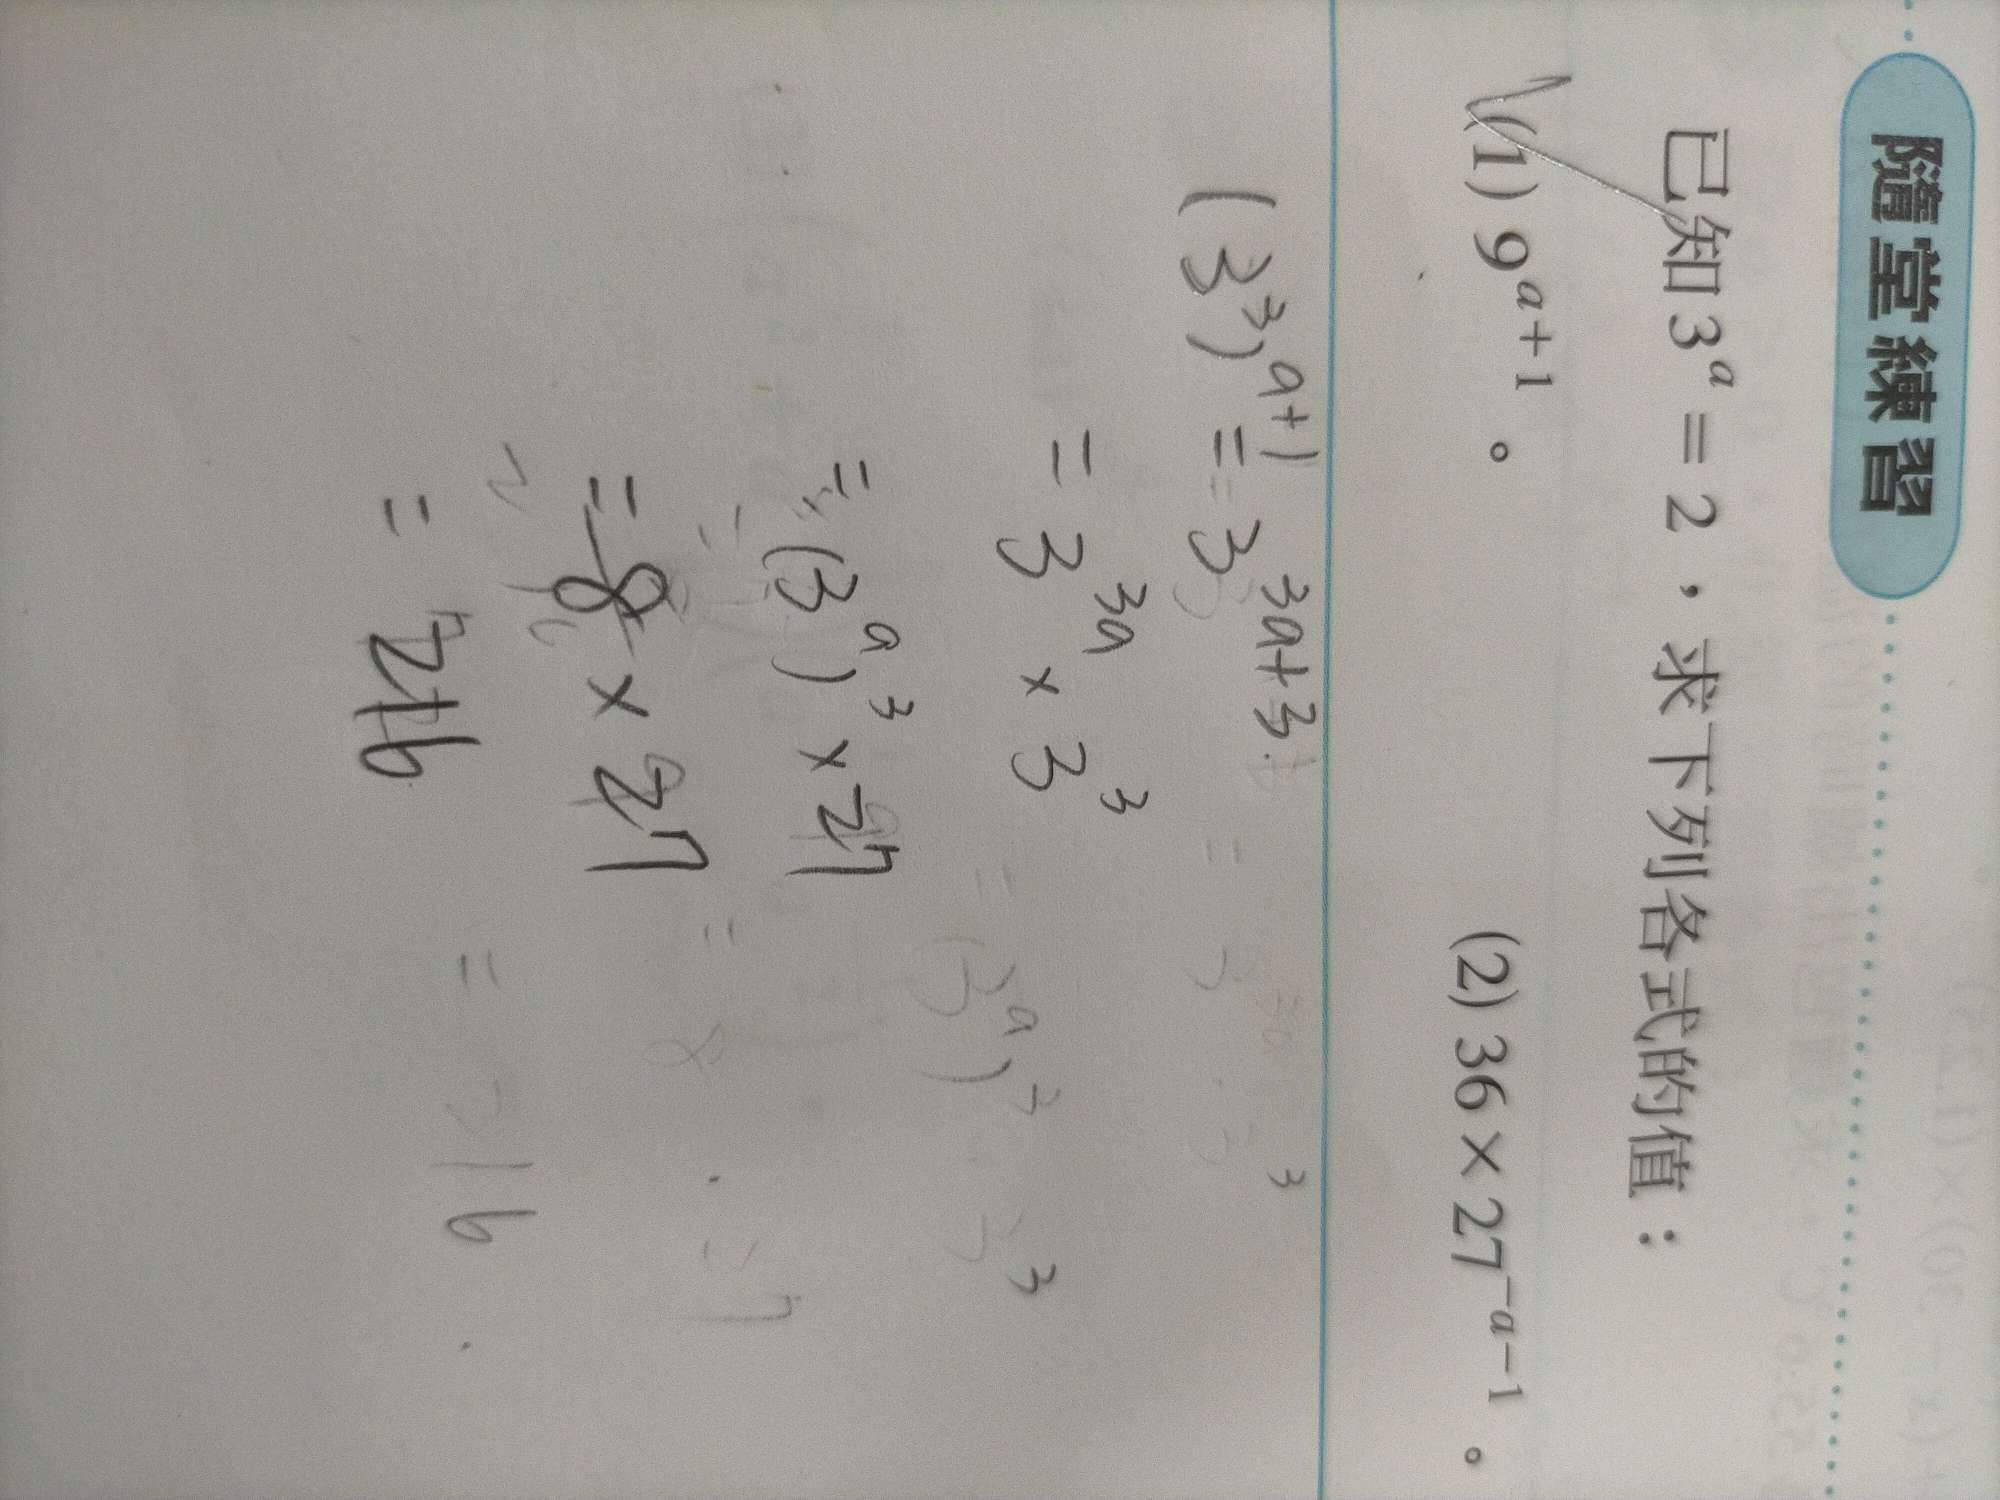 隨堂練習
已知 3^a = 2，求下列各式的值：
(1) 9^{a+1}。 (2) 36 × 27^{-a-1}。
(3^3)^{a+1} = 3^{3a+3}
= 3^{3a} × 3^3
= (3^a)^3 × 27
= 8 × 27
= 216